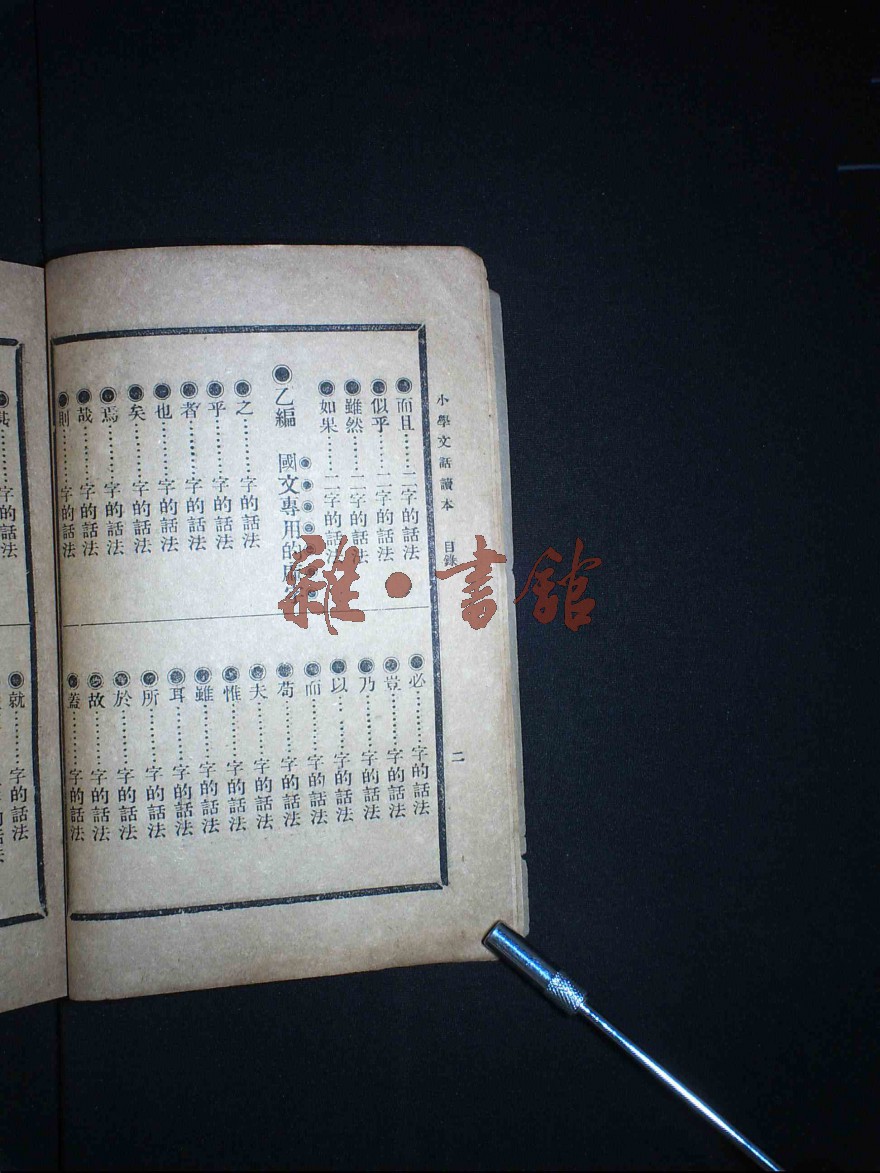 小學文話讀本 目錄
二
◉而且……二字的話法
◉似乎……二字的話法
◉雖然……二字的話法
◉如果……二字的話法
◉乙編 國文專用的
◉之………字的話法
◉乎………字的話法
◉者………字的話法
◉也………字的話法
◉矣………字的話法
◉焉………字的話法
◉哉………字的話法
◉則………字的話法
◉必………字的話法
◉豈………字的話法
◉乃………字的話法
◉以………字的話法
◉而………字的話法
◉苟………字的話法
◉夫………字的話法
◉惟………字的話法
◉雖………字的話法
◉耳………字的話法
◉所………字的話法
◉於………字的話法
◉故………字的話法
◉蓋………字的話法
字的話法
◉就………字的話法
雜·書館